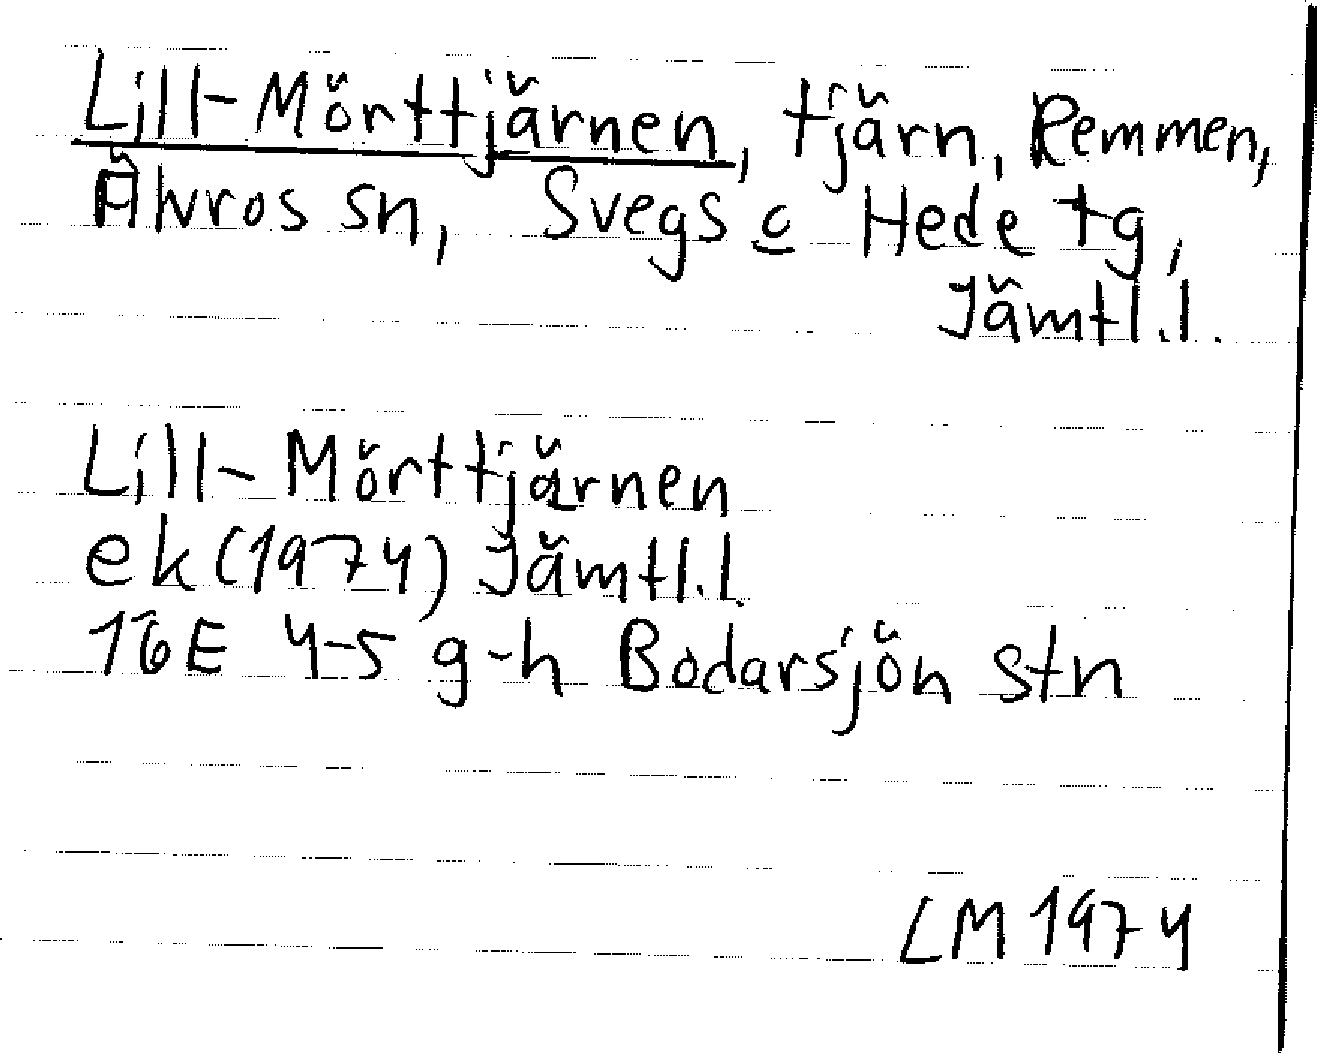 Lill-Mörttjärnen, tjärn, Remmen,
Älvros sn, Svegs o Hede tg,
Jämtl.l.
Lill-Mörttjärnen
ek (1974) Jämtl.l.
16E 4-5 g-h Bodarsjön stn
LM 1974